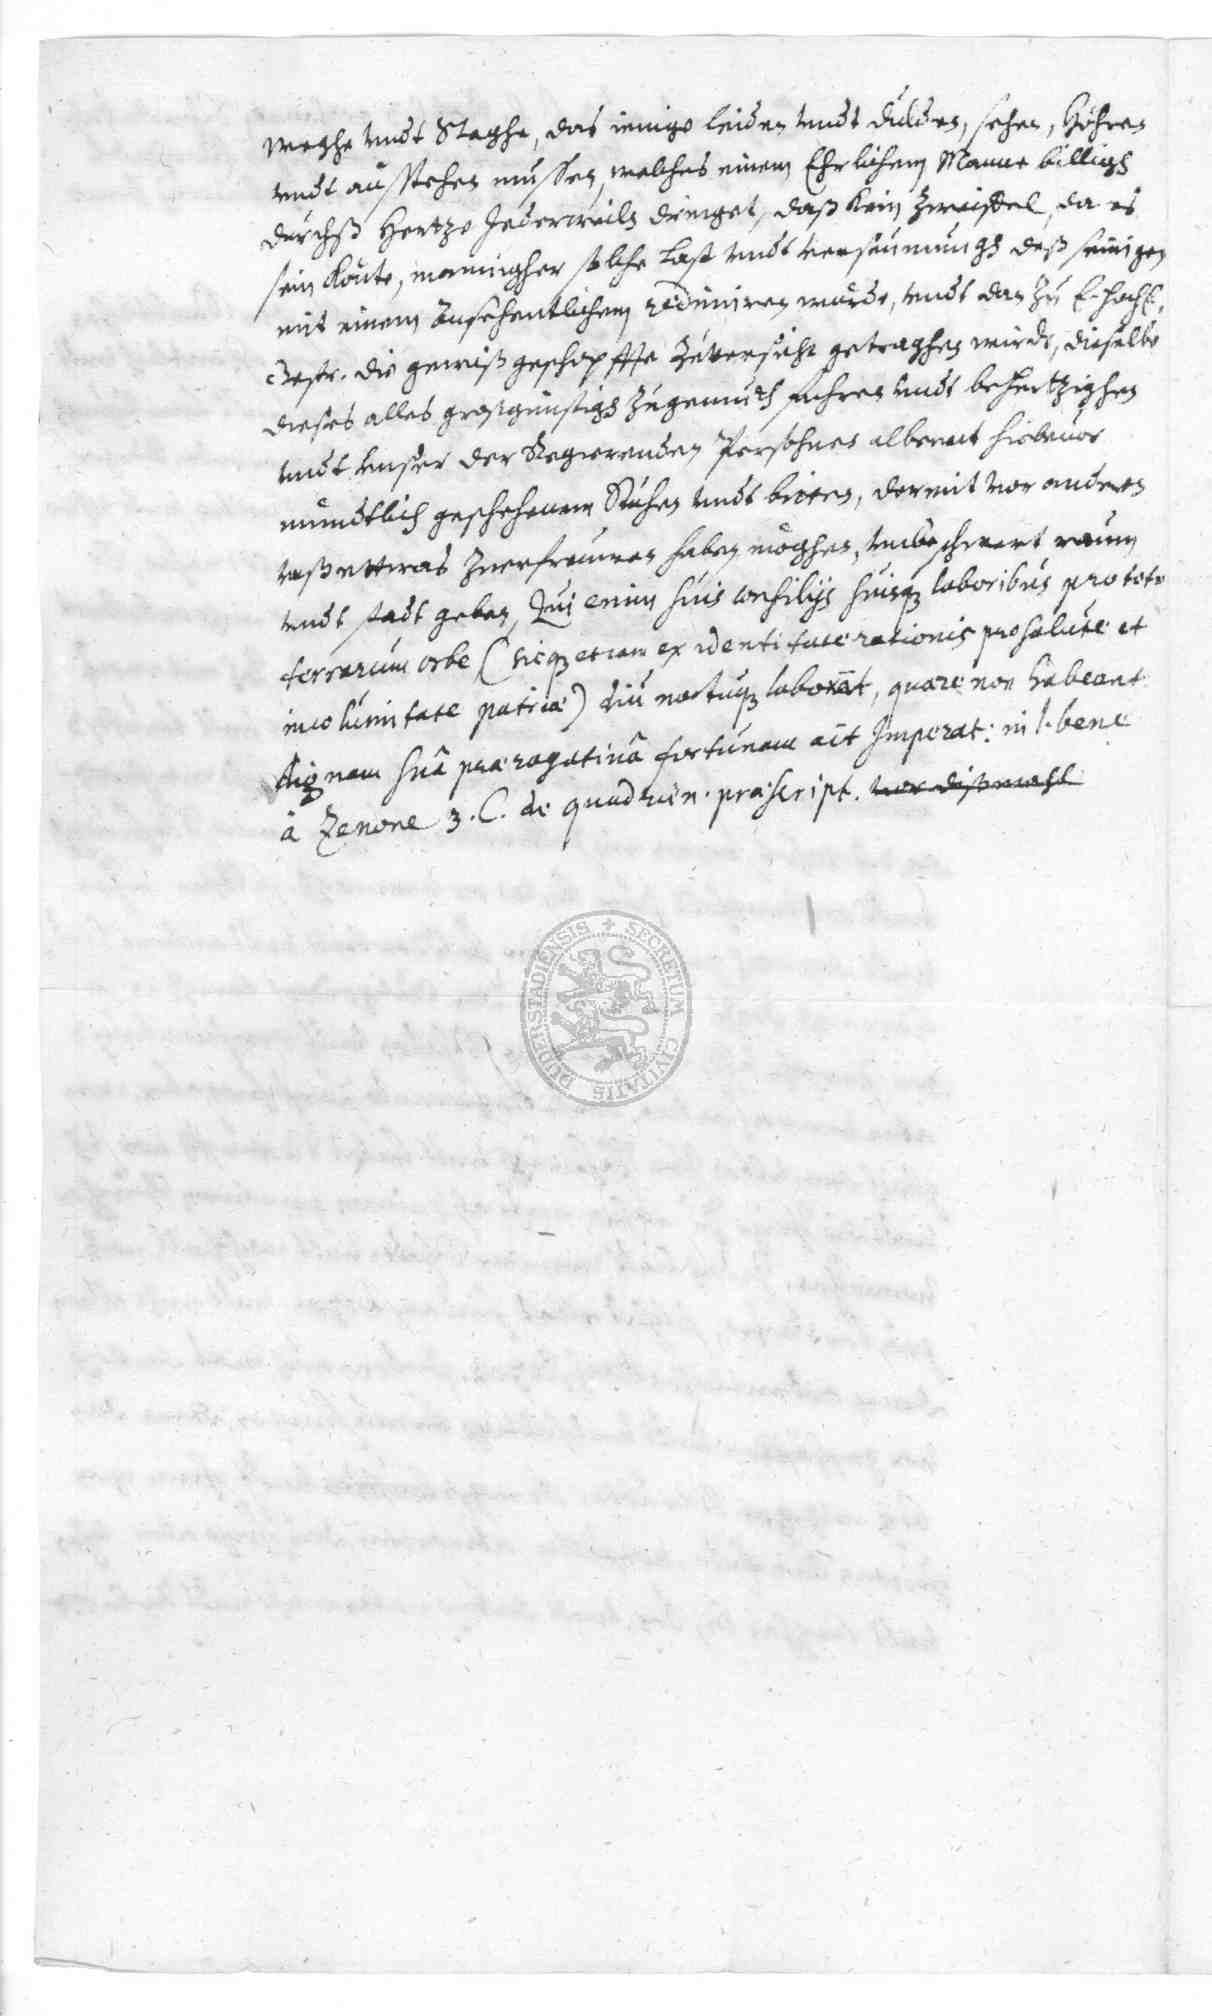 weghe undt Klaghe, das ienige leiden undt dulden, sehen, höhren
undt außstehen mußen, welches einem Ehrlichem Manne billigh
durchß Hertze Jederweils dringet, daß kein Zweiffel, da es
sein könte, mannigher solche Last undt verseumungh deß seinigen
mit einem ansehentlichem redimiren würde, undt dan zu E. hochE.
Gestr. die gewiß geschopffte Zuversicht getraghen wirdt, dieselbe
dieses alles großgunstigh zugemuth fuhren undt behertzighen
undt unser der Regierenden Persohnen albereit hiebevor
mündtlich geschehenem Suchen undt bitten, darmit vor anderen
unß ettwas zuerfreuwen haben möghen, unbeschwert raum
undt stadt geben, Qui enim suis consilijs suisq laboribus pro toto
terrarum orbe (sicq etiam ex identitate rationis pro salute et
incolumitate patriæ) diu noctuq laborāt, quare non habeant
dignam suâ prærogativâ fortunam ait Imperat: in l. bene
â Zenone 3. C. de quadrien. præscript. vor dißmahl
SECRETUM CIVITATIS DUDERSTADIENSIS